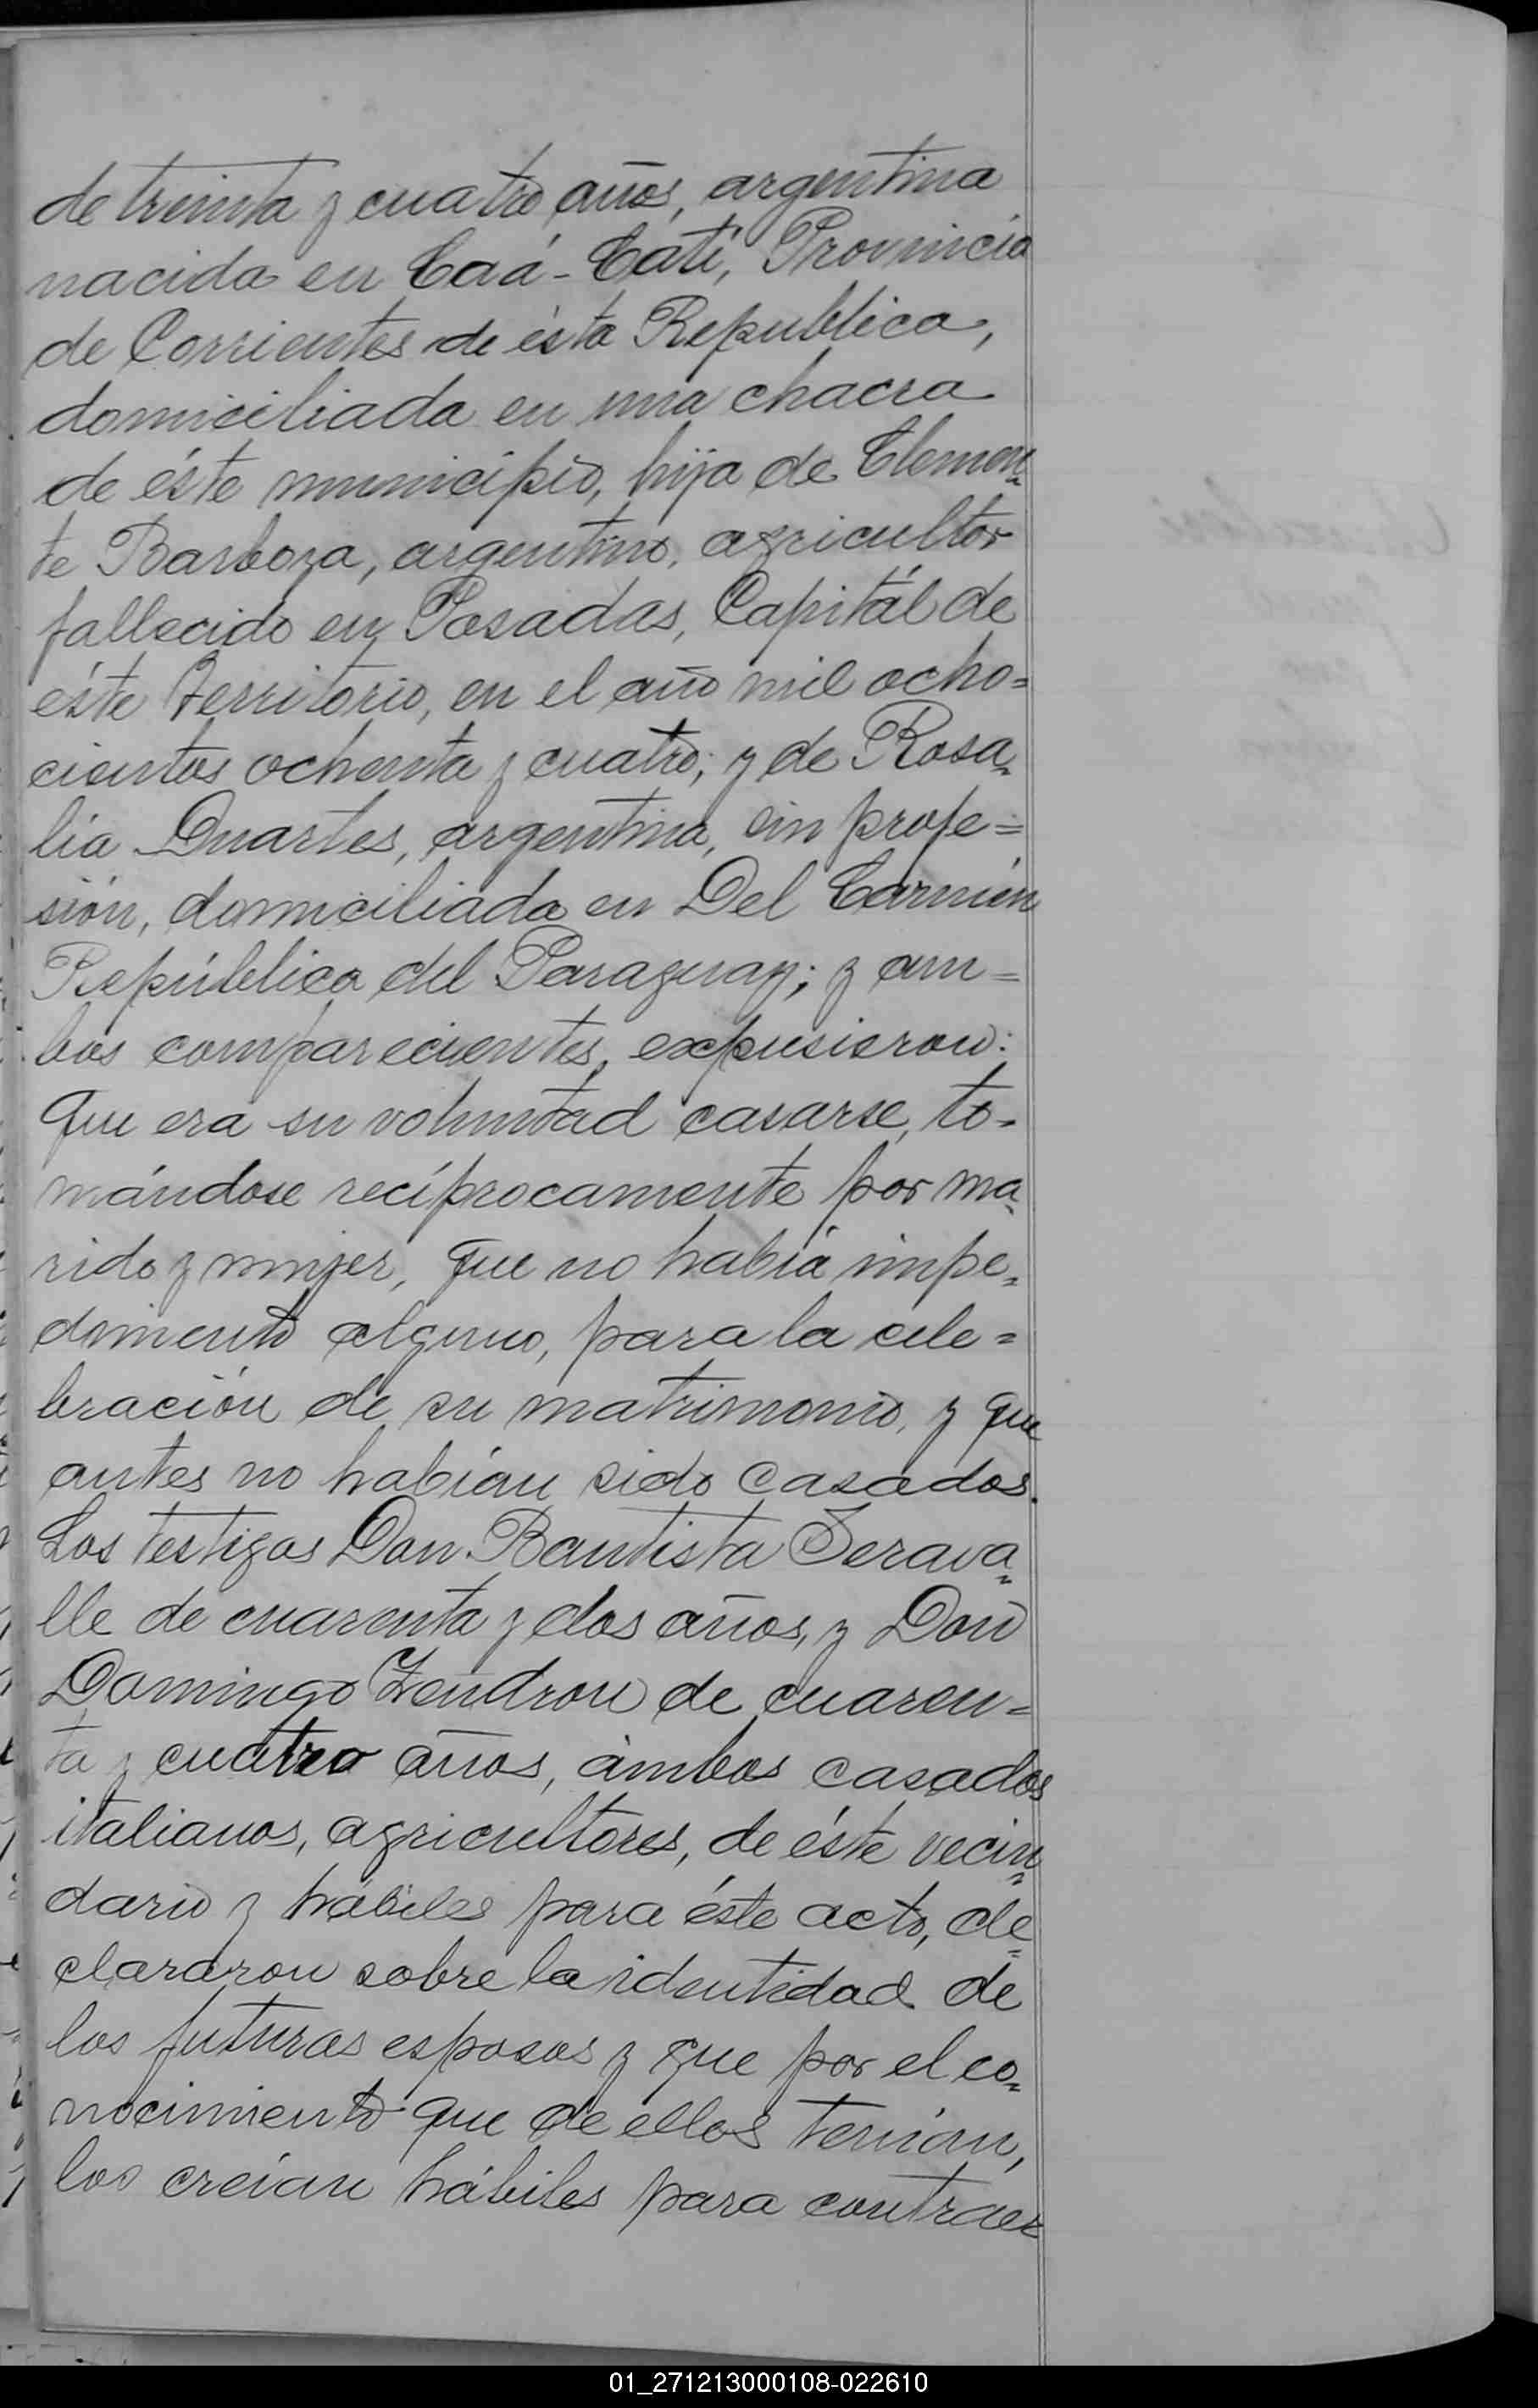 de treinta y cuatro años, argentina
nacida en Caá-Catí, Provincia
de Corrientes de ésta Republica,
domiciliada en una chacra
de éste municipio, hija de Clemen=
te Barboza, argentino, agricultor
fallecido en Posadas, Capitál de
éste Territorio, en el año mil ocho=
cientos ochenta y cuatro; y de Rosa=
lia Duartes, argentina, sin profe=
sión, domiciliada en Del Carmén
República del Paraguay; y am=
bos comparecientes, expusieron:
Que era su voluntad casarse, to-
mándose recíprocamente por ma=
rido y mujer, que no había impe=
dimento alguno, para la cele=
bración de su matrimonio, y que
antes no habían sido casados.
Los testigos Don Bautista Serava=
lle de cuarenta y dos años, y Don
Domingo Zendron de cuaren=
ta y cuatro años, ámbos casados
italianos, agricultores, de éste vecin=
dario y hábiles para éste acto, de=
clararon sobre la identidad de
los futuros esposos y que por el co=
nocimiento que de ellos tenían,
los creían hábiles para contraer
01_271213000108-022610